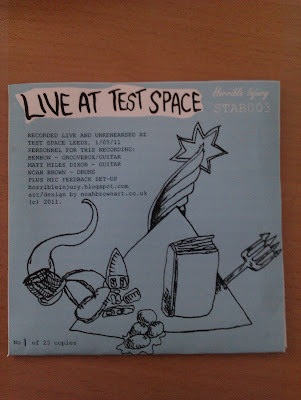 LIVE AT TEST SPACE
Horrible Injury
STAB003
RECORDED LIVE AND UNREHEARSED AT
TEST SPACE LEEDS, 1/05/11
PERSONNEL FOR THIS RECORDING:
BENBOW - GROOVEBOX/GUITAR
MATT MILES DIXON - GUITAR
NOAH BROWN - DRUMS
PLUS MIC FEEDBACK SET-UP
horribleinjury.blogspot.com
art/design by noahbrownart.co.uk
(c) 2011.
No 1 of 25 copies